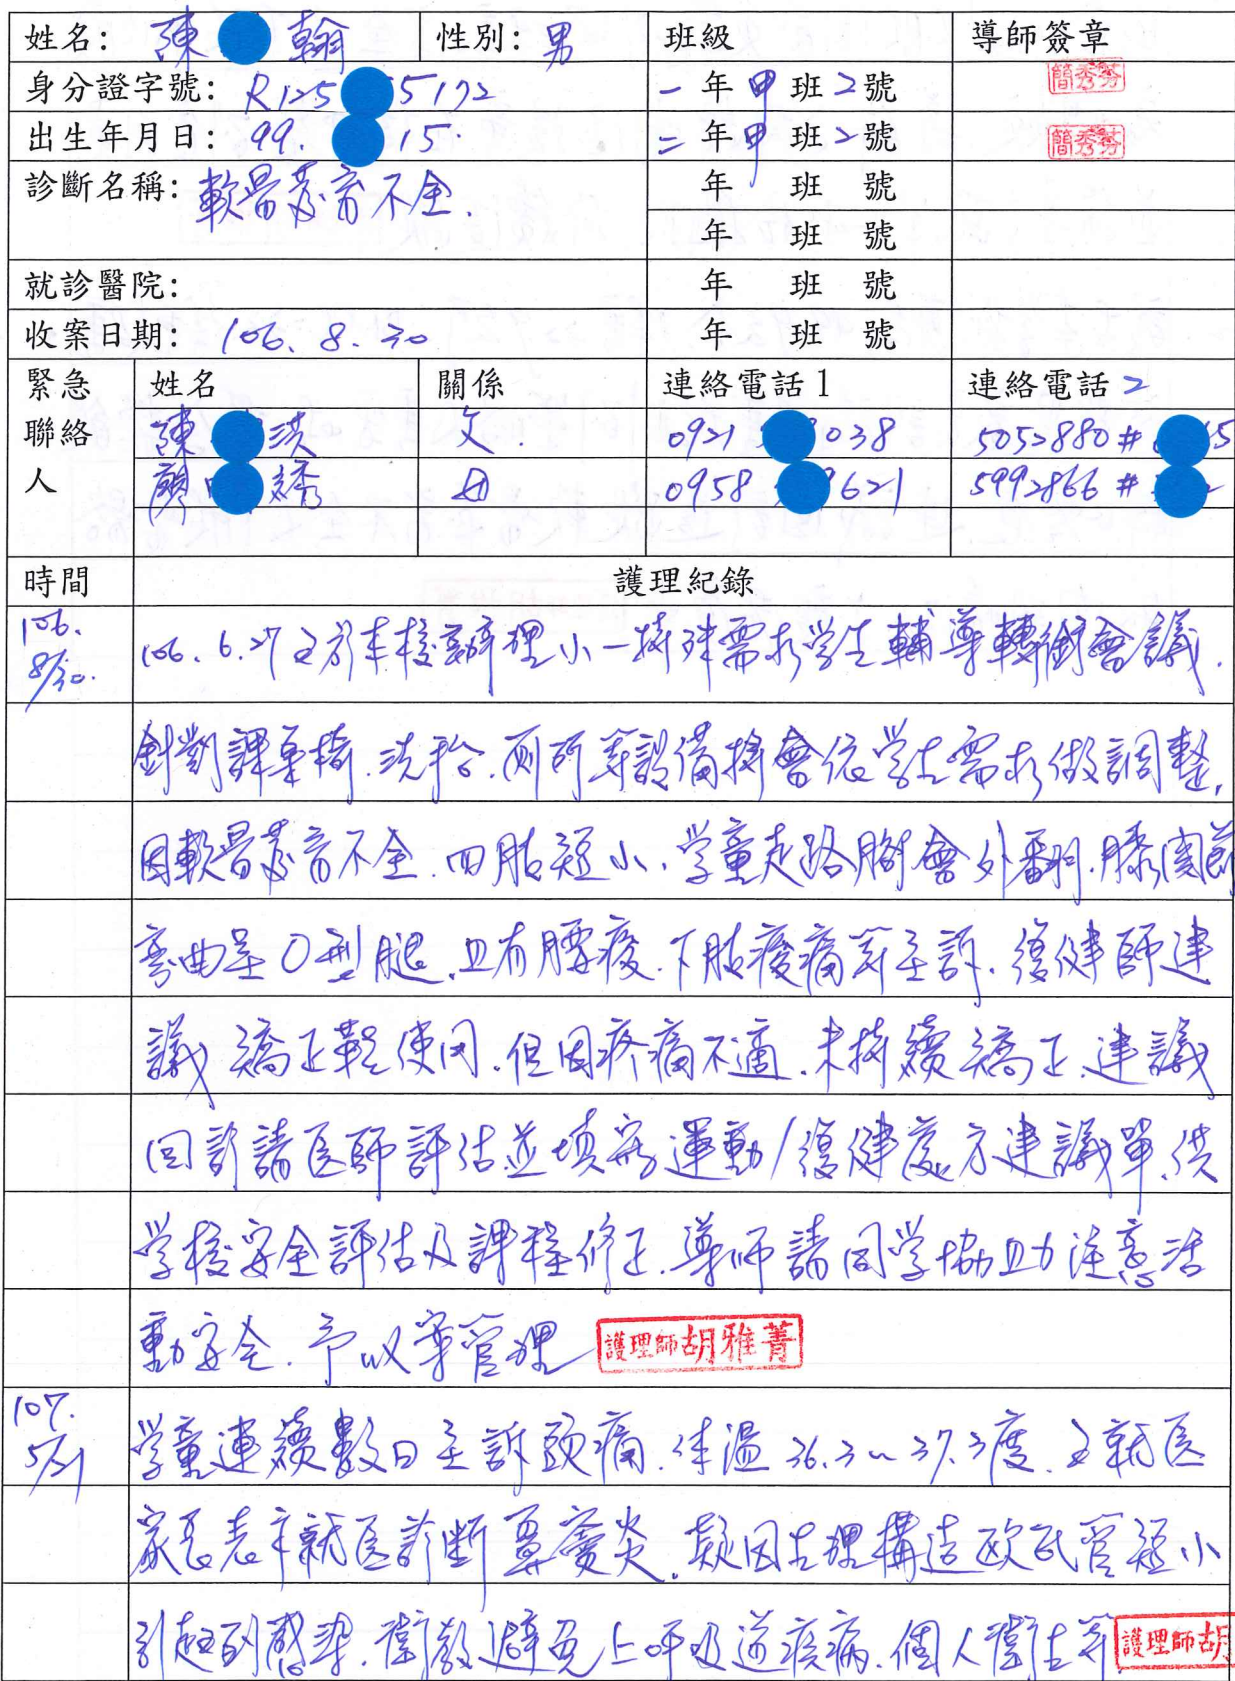 姓名: 陳 翰 性別: 男 班級 導師簽章
身分證字號: R125 5172 一年甲班2號 簡秀芬
出生年月日: 99. 15. 二年甲班2號 簡秀芬
診斷名稱: 軟骨發育不全. 年 班 號
年 班 號
就診醫院: 年 班 號
收案日期: 106. 8. 30 年 班 號
緊急 姓名 關係 連絡電話1 連絡電話2
聯絡 陳 洪 父. 0921 038 5052880# 5
人 廖 綉 母 0958 9621 5992866#
時間 護理紀錄
106. 8/30. 106. 6. 27 已於本校辦理小一特殊需求学生輔導轉銜會議.
針對課桌椅.洗手台.厠所等設備將會依学生需求做調整,
因軟骨發育不全.四肢短小.学童走路腳會外翻.膝関節
彎曲呈O型腿.且有腰痠.下肢痠痛等主訴.復健師建
議矯正鞋使用.但因疼痛不適.未持續矯正.建議
回診請医師評估並填寫運動/復健處方建議單.供
学校安全評估及課程修正.導師請同学協助注意活
動安全.予以管理 護理師胡雅菁
107. 5/21 学童連續數日主訴頭痛.体溫36.3~37.3度.已就医
家長表示就医診斷鼻竇炎.疑因生理構造欧氏管短小
引起的感染.衛教避免上呼吸道疾病.個人衛生等 護理師胡